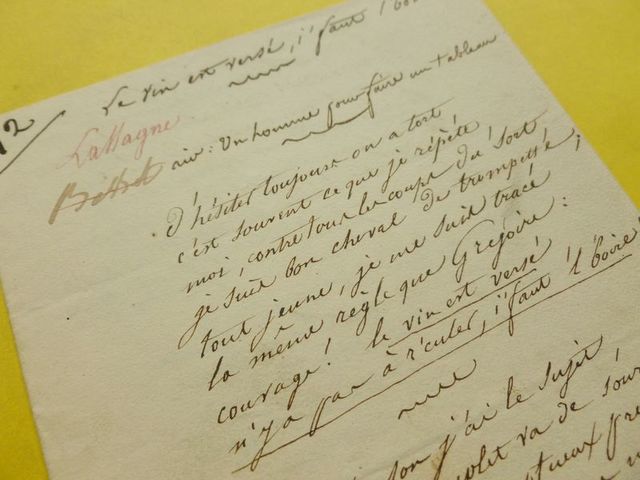 12
Le vin est versé, i'faut l'boire
Lassagne
air: Un homme pour faire un tableau
D'hésiter toujours on a tort
c'est souvent ce que je répète
moi, contre tous les coups du sort
je suis bon cheval de trompette;
tout jeune, je me suis tracé
la même règle que Grégoire:
courage! le vin est versé
n'ya pas à r'culer, i'faut l'boire
j'ai le sujet,
va de